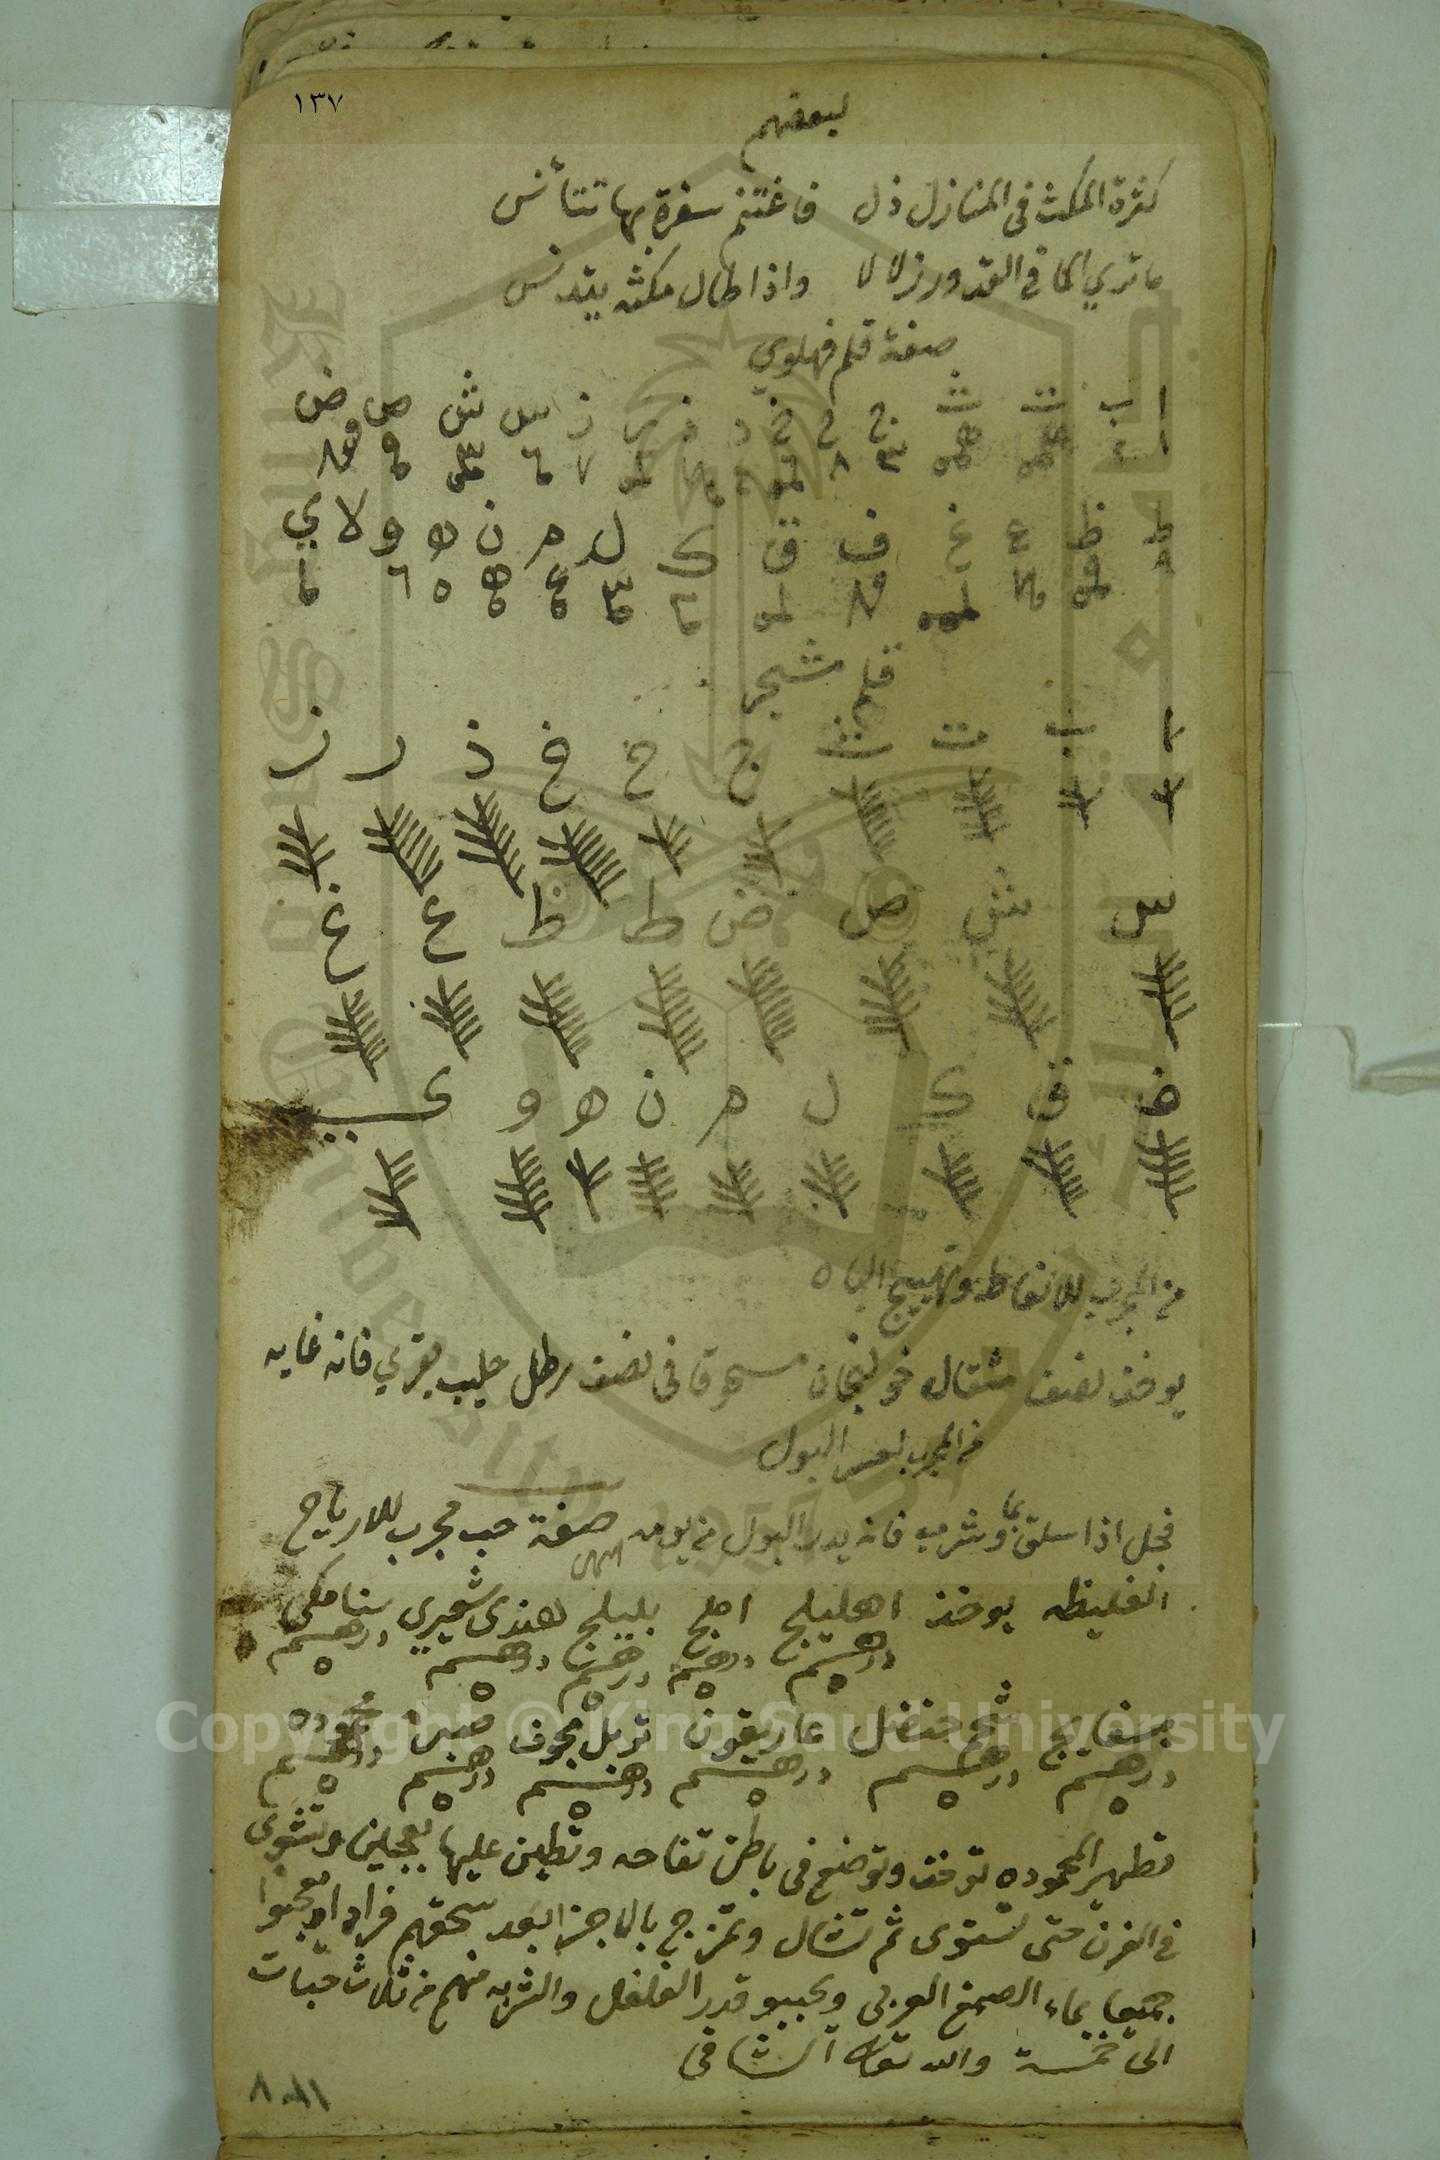 ١٣٧
لبعضهم
كثرة المكث في المنازل ذل فاغتنم سفرة بها تتأنس
ما تري الما في القدور زلالا واذا طال مكثه يتدنس
صفة قلم فهلوي
ا ب ت ث ج ح خ د ذ ر ز س ش ص ض
ط ظ ع غ ف ق ك ل م ن ه و لا ي
قلم شجر
ا ب ت ث ج ح خ ذ ر ز
س ش ص ض ط ظ ع غ
ف ق ك ل م ن ه و ي
من المجرب للانعاظ وتهييج الباه
يوخذ نصف مثقال خولنجان مسحوقا في نصف رطل حليب بقري فانه غايه
من المجرب لعسر البول
فجل اذا سلق بما وشرب فانه يدر البول من يومه انتهى صفة حب مجرب للارياح
الغليظه يوخذ اهليلج املج بليلج هندى شعيري سنا مكي
درهم ٥ درهم ٥ درهم ٥ درهم ٥ درهم ٥
بسفايج شحم حنضل غاريقون تربل مجوف صبر محموده
درهم ٥ درهم ٥ درهم ٥ درهم ٥ درهم ٥ درهم ٥
تطهير المحموده توخذ وتوضع في باطن تفاحه وتطين عليها بعجين وتشوى
في الفرن حتى تستوى ثم تشال وتمزج بالاجزا بعد سحقهم فرادا ويعجنوا
جميعا بماء الصمغ العربي ويحببو قدر الفلفل والشربه منهم من ثلاث حبات
الى خمسة والله تعالى الشافي
Copyright © King Saud University
King Saud University
1957